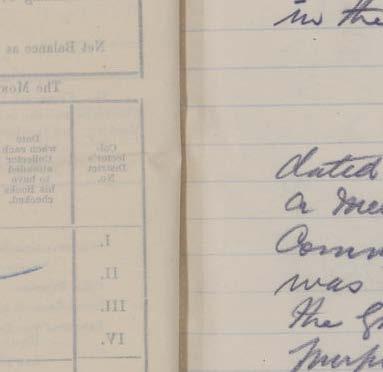 Net Balance as
The Mon
Date when each Collector attended to have his Books checked.
Col- lector's District No.
I.
II.
III.
IV.
in the
dated
a
was
the